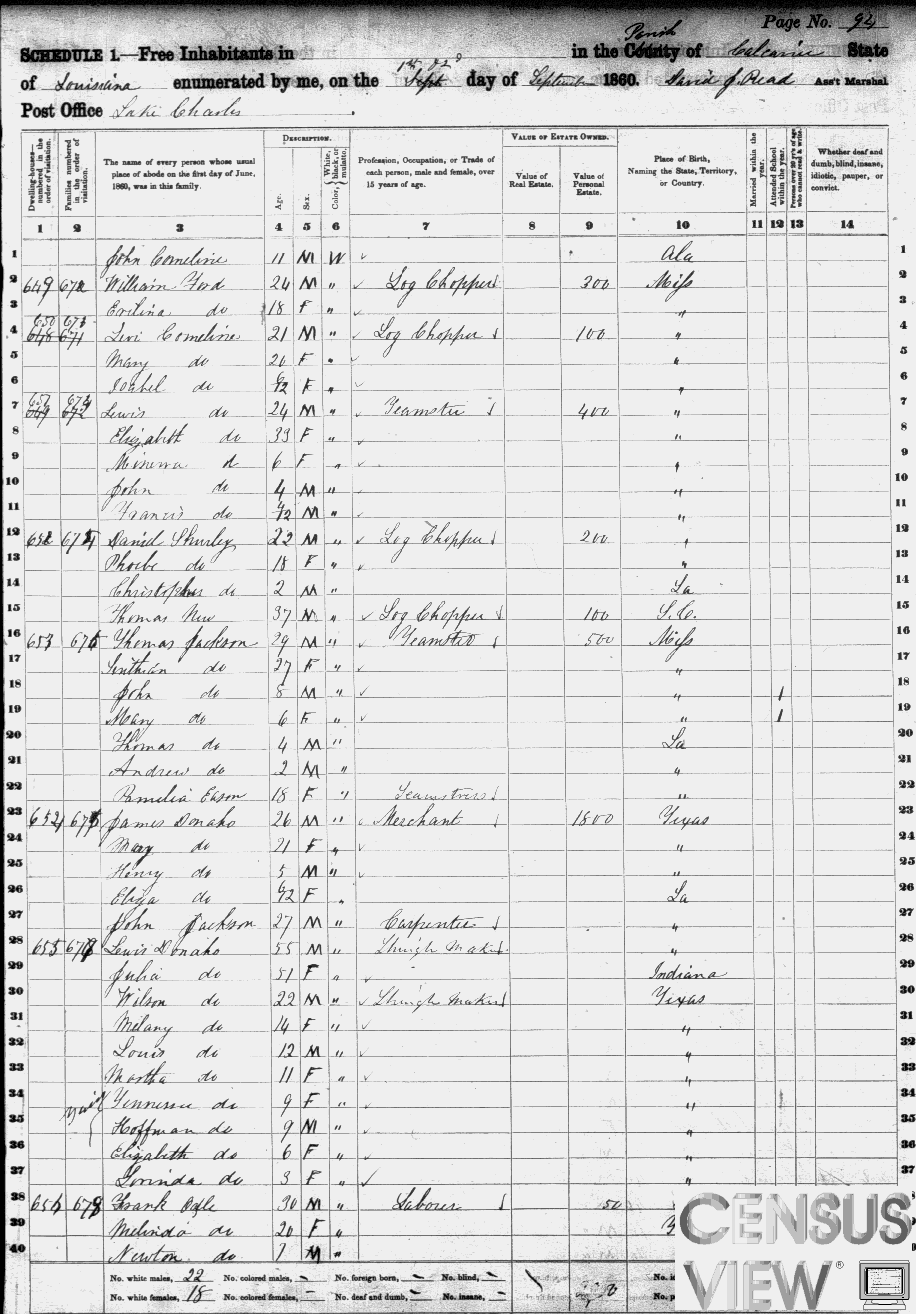 Page No. 92
SCHEDULE 1.—Free Inhabitants in in the County Parish of Calcasieu State
of Louisiana enumerated by me, on the 1st, 02d Sept day of September 1860. David J. Read Ass't Marshal
Post Office Lake Charles
Dwelling-houses—numbered in the order of visitation.
Families numbered in the order of visitation.
The name of every person whose usual place of abode on the first day of June, 1860, was in this family.
DESCRIPTION.
Age.
Sex.
Color, White, black, or mulatto.
Profession, Occupation, or Trade of each person, male and female, over 15 years of age.
VALUE OF ESTATE OWNED.
Value of Real Estate.
Value of Personal Estate.
Place of Birth, Naming the State, Territory, or Country.
Married within the year.
Attended School within the year.
Persons over 20 yr's of age who cannot read & write.
Whether deaf and dumb, blind, insane, idiotic, pauper, or convict.
1 2 3 4 5 6 7 8 9 10 11 12 13 14
1 John Comelivie 11 M W Ala 1
2 649 672 William Ford 24 M " Log Chopper 300 Miss 2
3 Evilina do 18 F " " 3
4 650 673 648 671 Levi Comelivie 21 M " Log Chopper 100 " 4
5 Mary do 20 F " " 5
6 Isabel do 6/12 F " " 6
7 651 674 649 672 Lewis do 24 M " Teamster 400 " 7
8 Elizabeth do 39 F " " 8
9 Minerva d 6 F " " 9
10 John do 4 M " " 10
11 Francis do M " " 11
12 652 Daniel 22 M " Log Chopper 200 " 12
13 Phoebe do 18 F " " 13
14 Christopher do 2 M " La 14
15 Thomas New 37 M " Log Chopper 100 S.C. 15
16 653 Thomas Jackson 29 M " Teamster 500 Miss 16
17 do 27 F " " 17
18 John do 8 M " " 1 18
19 Mary do 6 F " " 1 19
20 Thomas do 4 M " La 20
21 Andrew do 2 M " " 21
22 Pamelia Eason 18 F " Seamstress " 22
23 654 James Donaho 26 M " Merchant 1800 Texas 23
24 Mary do 21 F " " 24
25 Henry do 5 M " " 25
26 Eliza do 6/12 F " La 26
27 John Jackson 27 M " Carpenter " 27
28 655 Lewis Donaho 55 M " Shingle Maker " 28
29 Julia do 51 F " Indiana 29
30 Wilson do 22 M " Shingle Maker Texas 30
31 Melany do 14 F " " 31
32 Louis do 12 M " " 32
33 Martha do 11 F " " 33
34 Tennessee do 9 F " " 34
35 Hoffman do 9 M " " 35
36 Elizabeth do 6 F " " 36
37 Lorinda do 3 F " " 37
38 656 Frank Ogle 30 M " Laborer 50
39 Melinda do 20 F "
40 Newton do 1 M "
No. white males, 22 No. colored males, – No. foreign born, – No. blind, –
No. white females, 18 No. colored females, – No. deaf and dumb, – No. insane, –
CENSUS
VIEW®